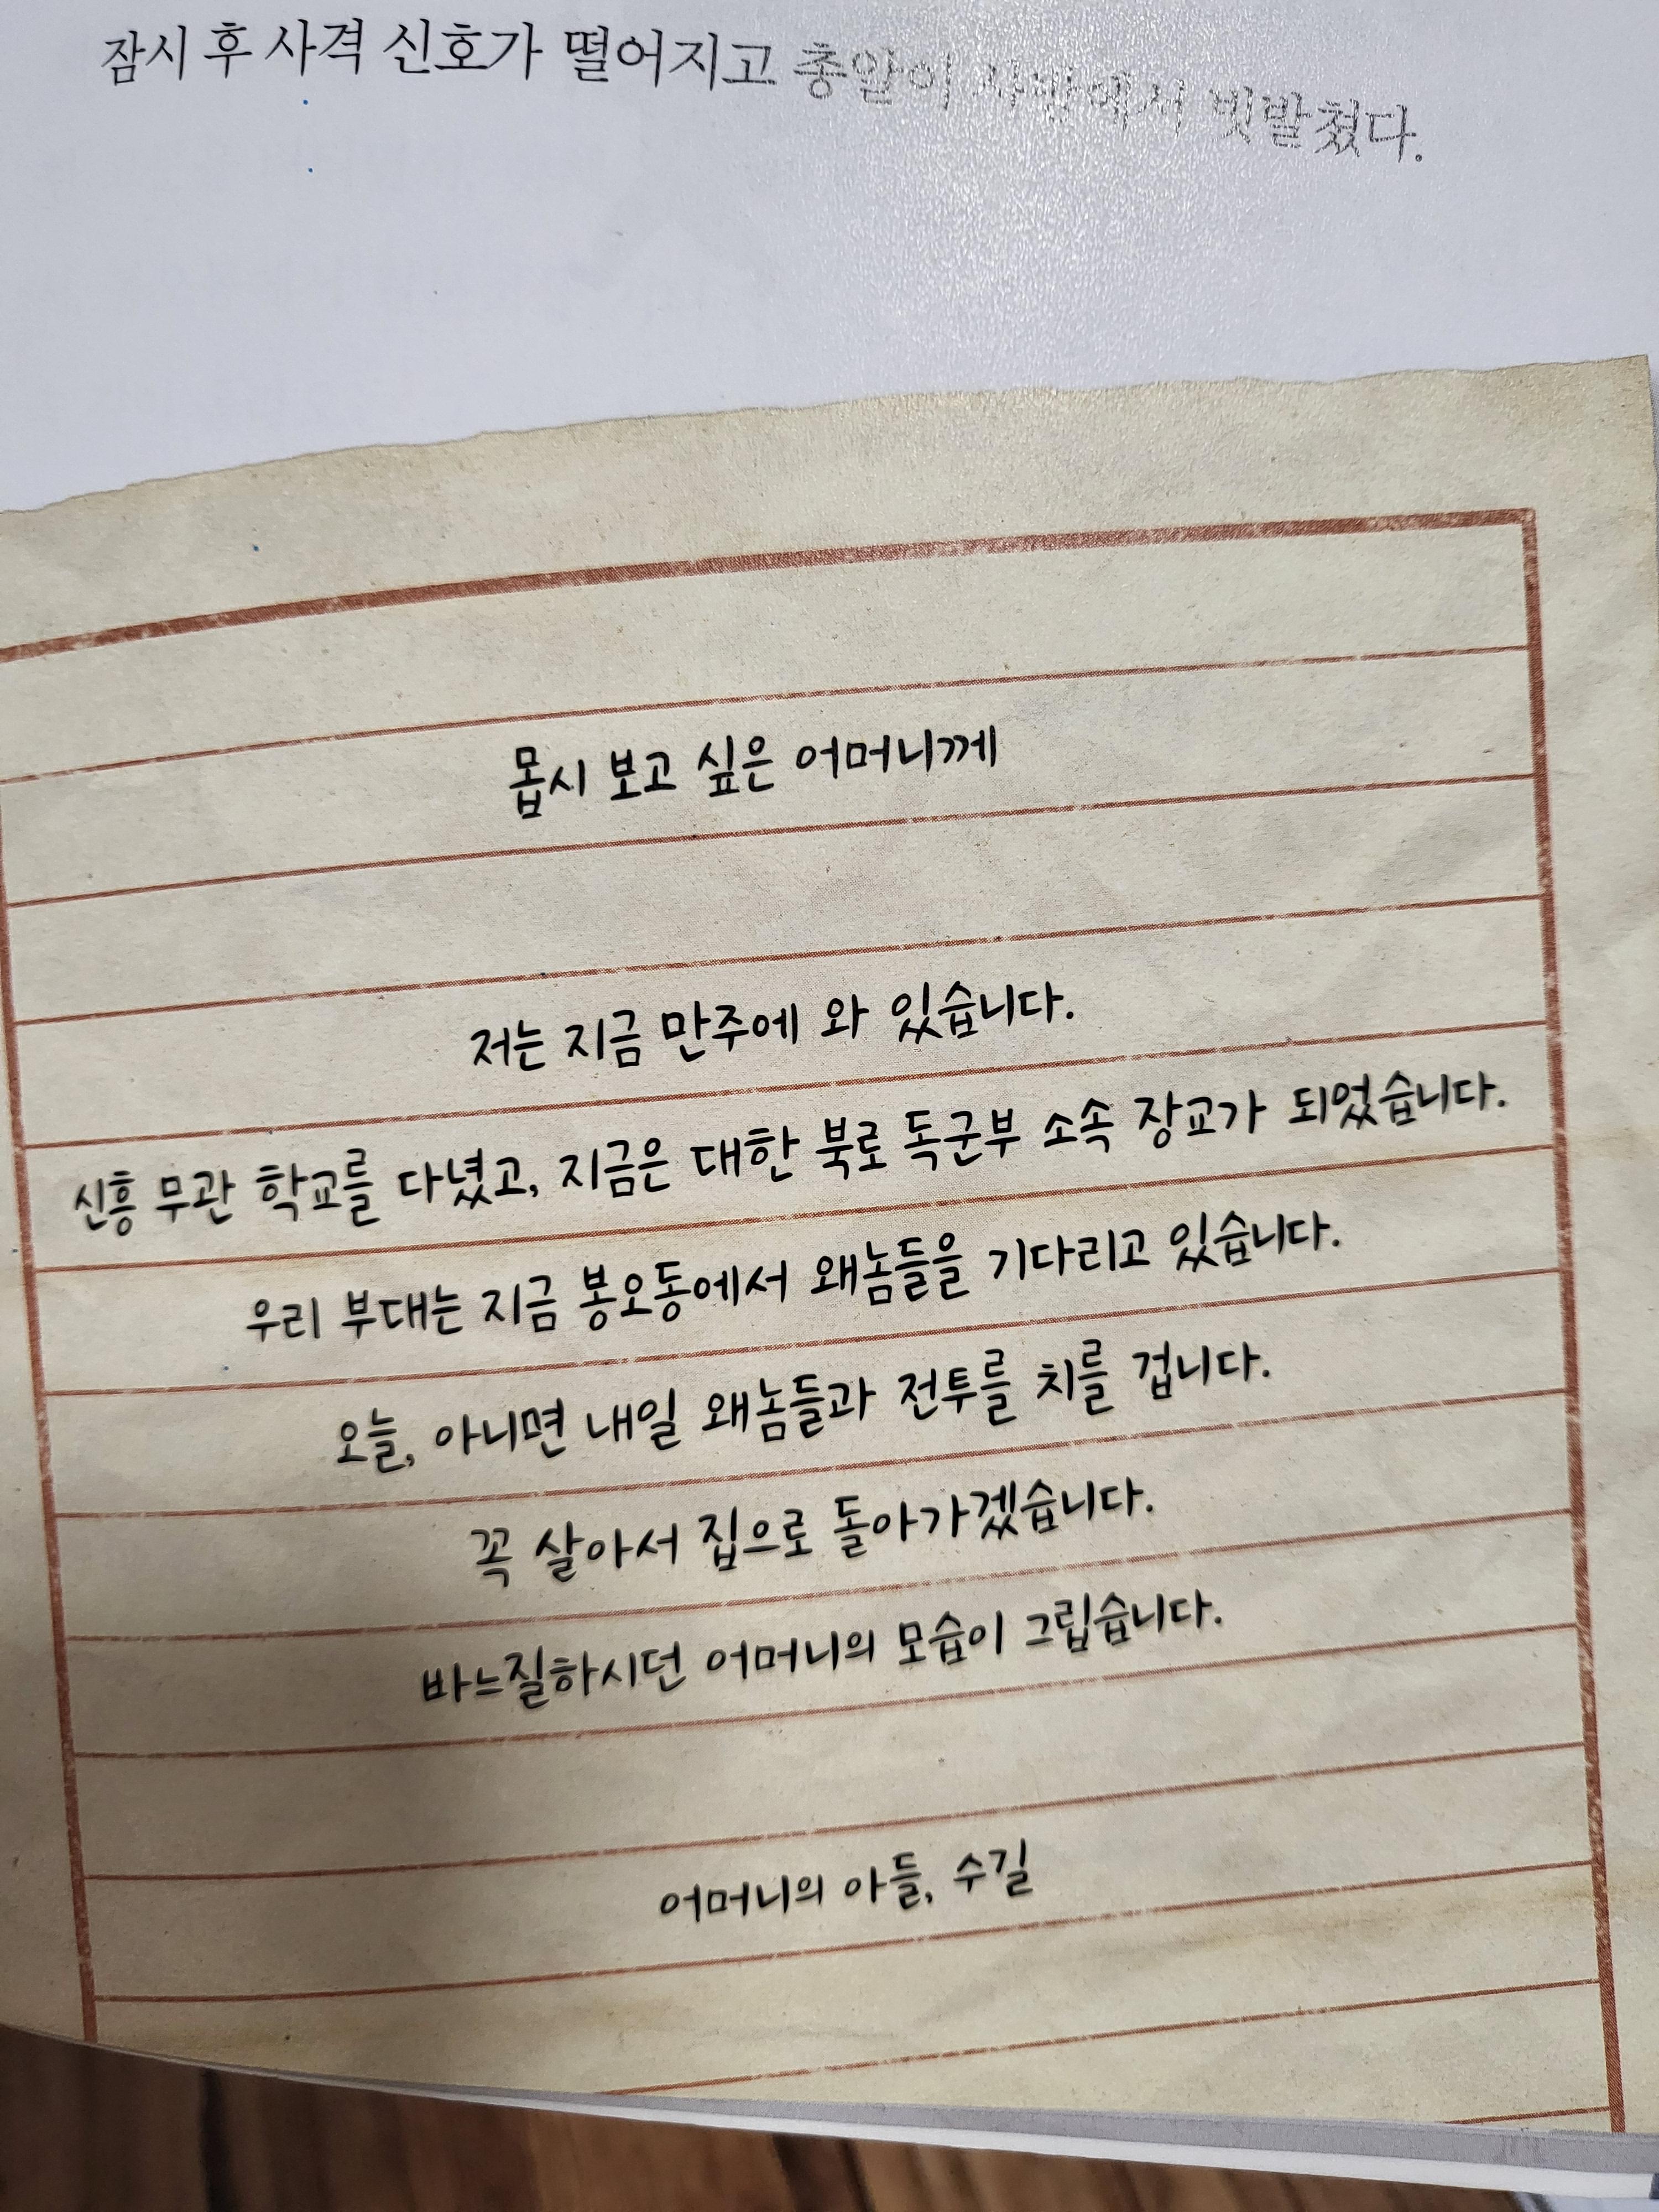 잠시 후 사격 신호가 떨어지고 총알이 사방에서 빗발쳤다.
몹시 보고 싶은 어머니께
저는 지금 만주에 와 있습니다.
신흥 무관 학교를 다녔고, 지금은 대한 북로 독군부 소속 장교가 되었습니다.
우리 부대는 지금 봉오동에서 왜놈들을 기다리고 있습니다.
오늘, 아니면 내일 왜놈들과 전투를 치를 겁니다.
꼭 살아서 집으로 돌아가겠습니다.
바느질하시던 어머니의 모습이 그립습니다.
어머니의 아들, 수길